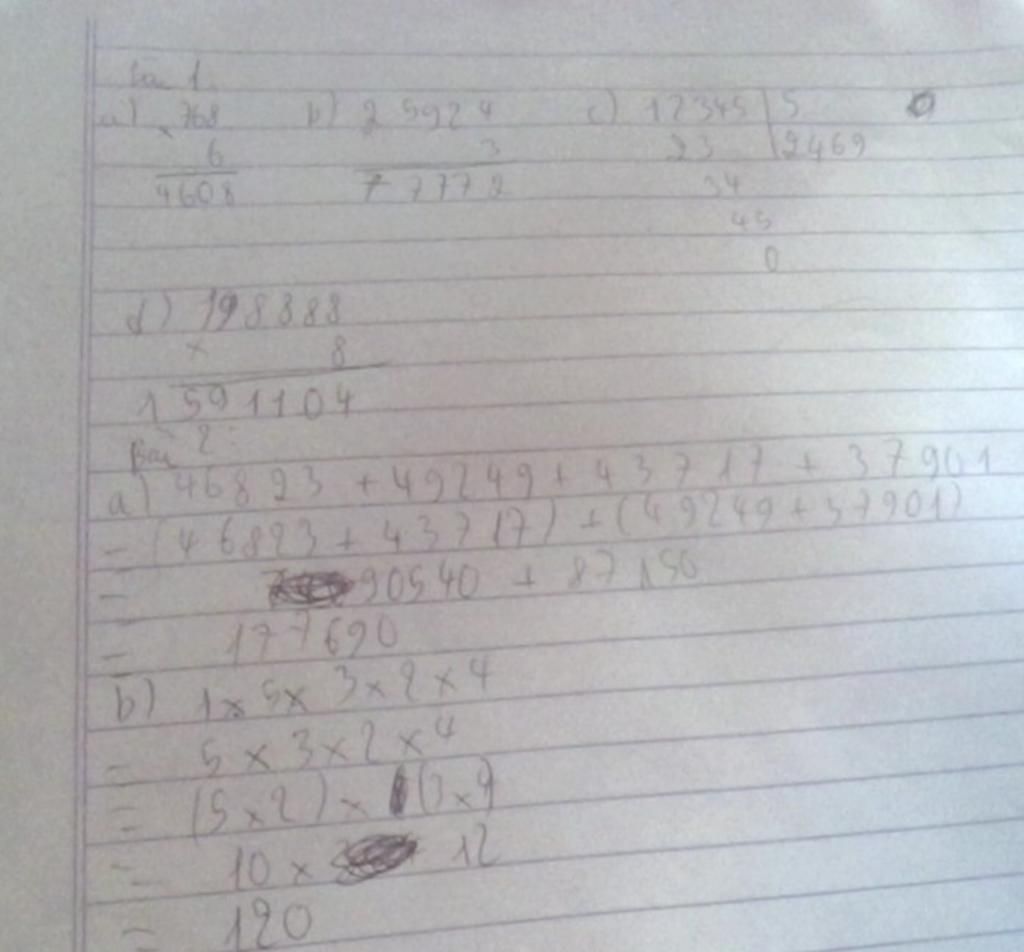 Bài 1
a) 768 b) 25924 c) 12345 | 5
× 6 3 23 | 2469
4608 77772 34
45
0
d) 198888
× 8
1591104
Bài 2:
a) 46823 + 49249 + 43717 + 37901
= (46823 + 43717) + (49249 + 37901)
= 90540 + 87150
= 177690
b) 1 × 5 × 3 × 2 × 4
= 5 × 3 × 2 × 4
= (5 × 2) × (3 × 4)
= 10 × 12
= 120